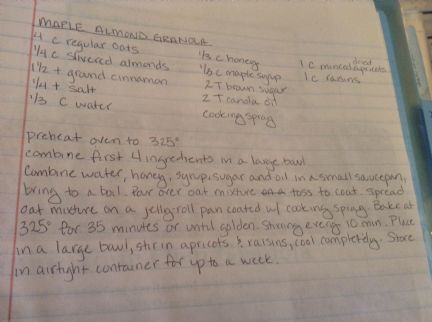 MAPLE ALMOND GRANOLA
4 c regular oats
1/4 c slivered almonds
1 1/2 t ground cinnamon
1/4 t salt
1/3 c water
1/3 c honey
1/3 c maple syrup
2 T brown sugar
2 T canola oil
cooking spray
1 c minced dried apricots
1 c raisins
preheat oven to 325°
combine first 4 ingredients in a large bowl
Combine water, honey, syrup, sugar and oil in a small saucepan,
bring to a boil. Pour over oat mixture toss to coat. Spread
oat mixture on a jelly roll pan coated w/ cooking spray. Bake at
325° for 35 minutes or until golden. Stirring every 10 min. Place
in a large bowl, stir in apricots & raisins, cool completely. Store
in airtight container for up to a week.